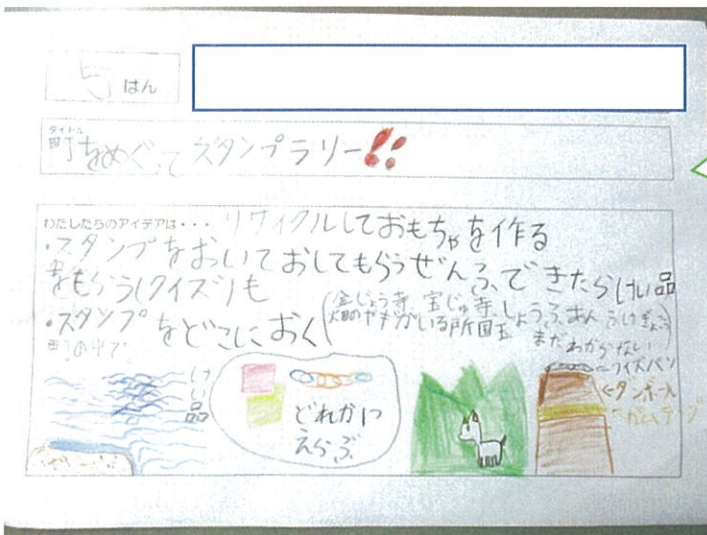 5 はん
タイトル
町をめぐって スタンプラリー!!
わたしたちのアイデアは・・・ リサイクルしておもちゃを作る
・スタンプをおいておしてもらうぜんぶできたらけい品
をもらう(クイズ)も
・スタンプをどこにおく
町の中で
宝じゅ寺
畑のヤギがいる所
まだわからない
けい品
どれか1つ
えらぶ
←クイズバン
←ダンボール
←ガムテープ